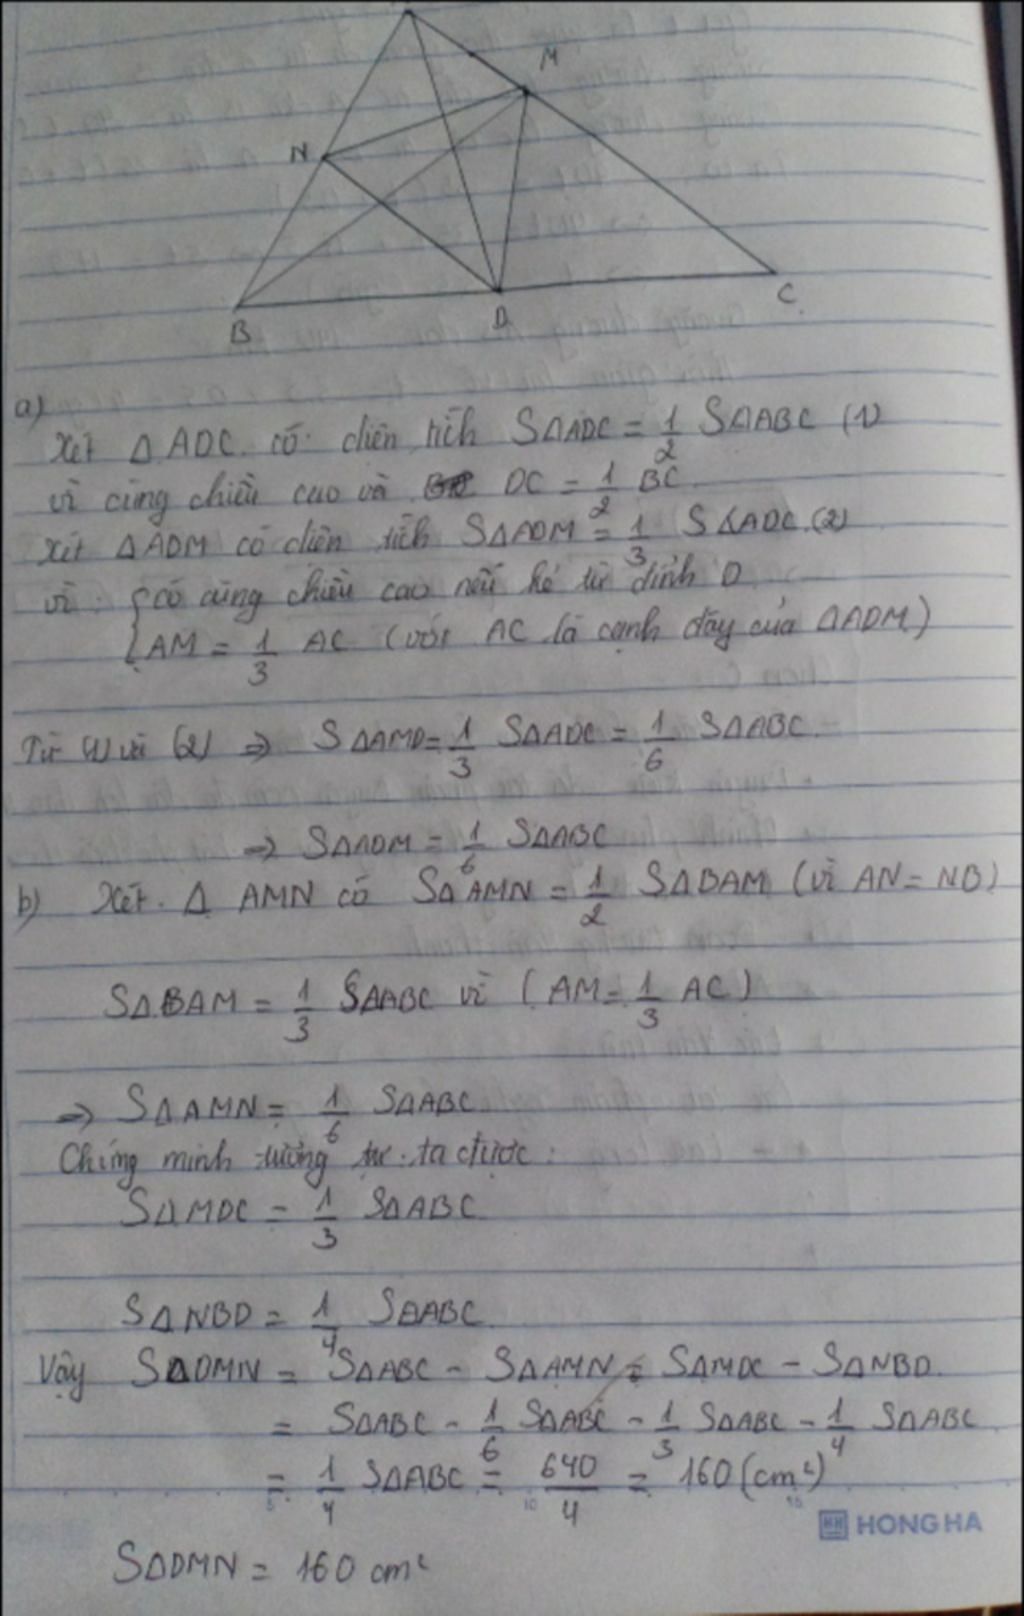 M
N
B
D
C
a)
Xét ΔADC có diện tích SΔADC = 1/2 SΔABC (1)
vì cùng chiều cao và DC = 1/2 BC
Xét ΔADM có diện tích SΔADM = 1/3 SΔADC (2)
vì: có cùng chiều cao nếu kẻ từ đỉnh D
AM = 1/3 AC (với AC là cạnh đáy của ΔADM)
Từ (1) và (2) ⇒ SΔAMD = 1/3 SΔADC = 1/6 SΔABC
⇒ SΔADM = 1/6 SΔABC
b) Xét Δ AMN có SΔAMN = 1/2 SΔBAM (vì AN = NB)
SΔBAM = 1/3 SΔABC vì (AM = 1/3 AC)
⇒ SΔAMN = 1/6 SΔABC
Chứng minh tương tự ta được:
SΔMDC = 1/3 SΔABC
SΔNBD = 1/4 SΔABC
Vậy SΔDMN = SΔABC - SΔAMN - SΔMDC - SΔNBD
= SΔABC - 1/6 SΔABC - 1/3 SΔABC - 1/4 SΔABC
= 1/4 SΔABC = 640/4 = 160 (cm²)
HH HONG HA
SΔDMN = 160 cm²